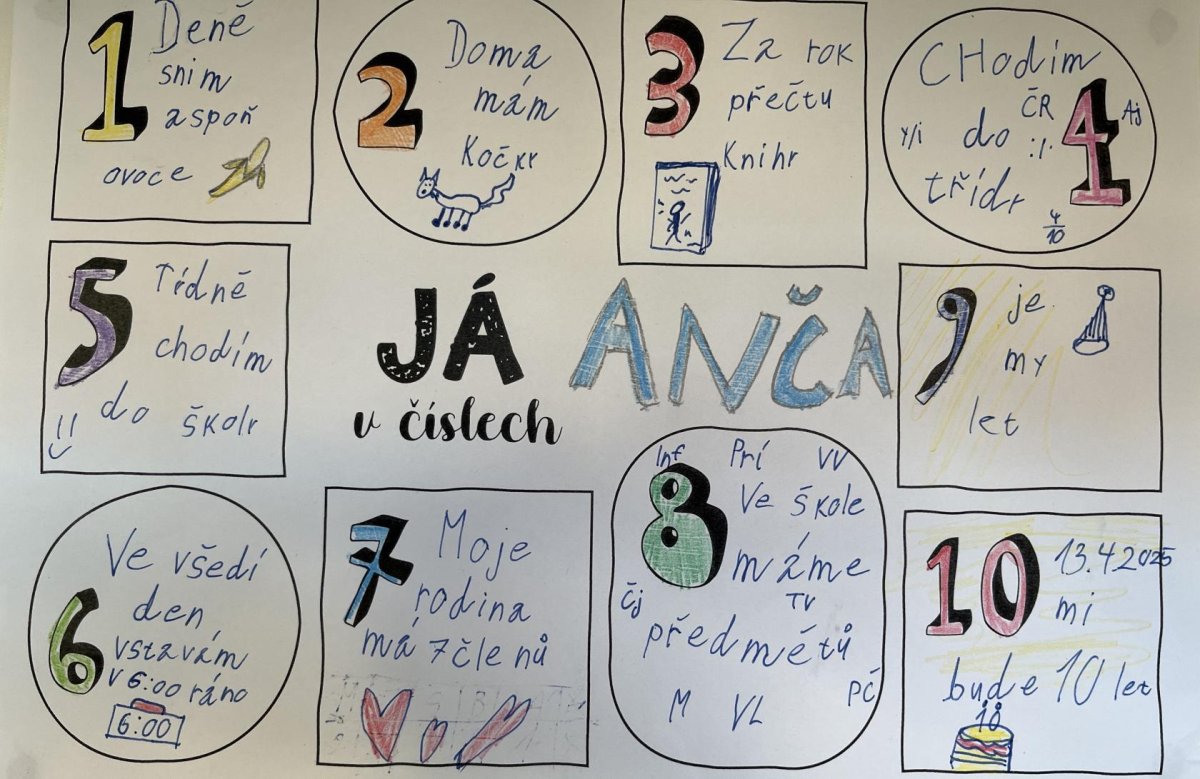 1 Deně
snim
aspoň
ovoce
2 Doma
mám
Kočkr
3 Za rok
přečtu
Knihr
CHodím
ČR
Aj
y/i
do
:1.
4
třídr
4/10
5 Tídně
chodím
do školr
JÁ ANČA
v číslech
9 je
my
let
6 Ve všedí
den
vstavám
v 6:00 ráno
6:00
7 Moje
rodina
má 7 členů
Inf Prí VV
8 Ve škole
máme
Čj
TV
předmétů
PČ
M VL
10 13.4.2025
mi
bude 10 let
10